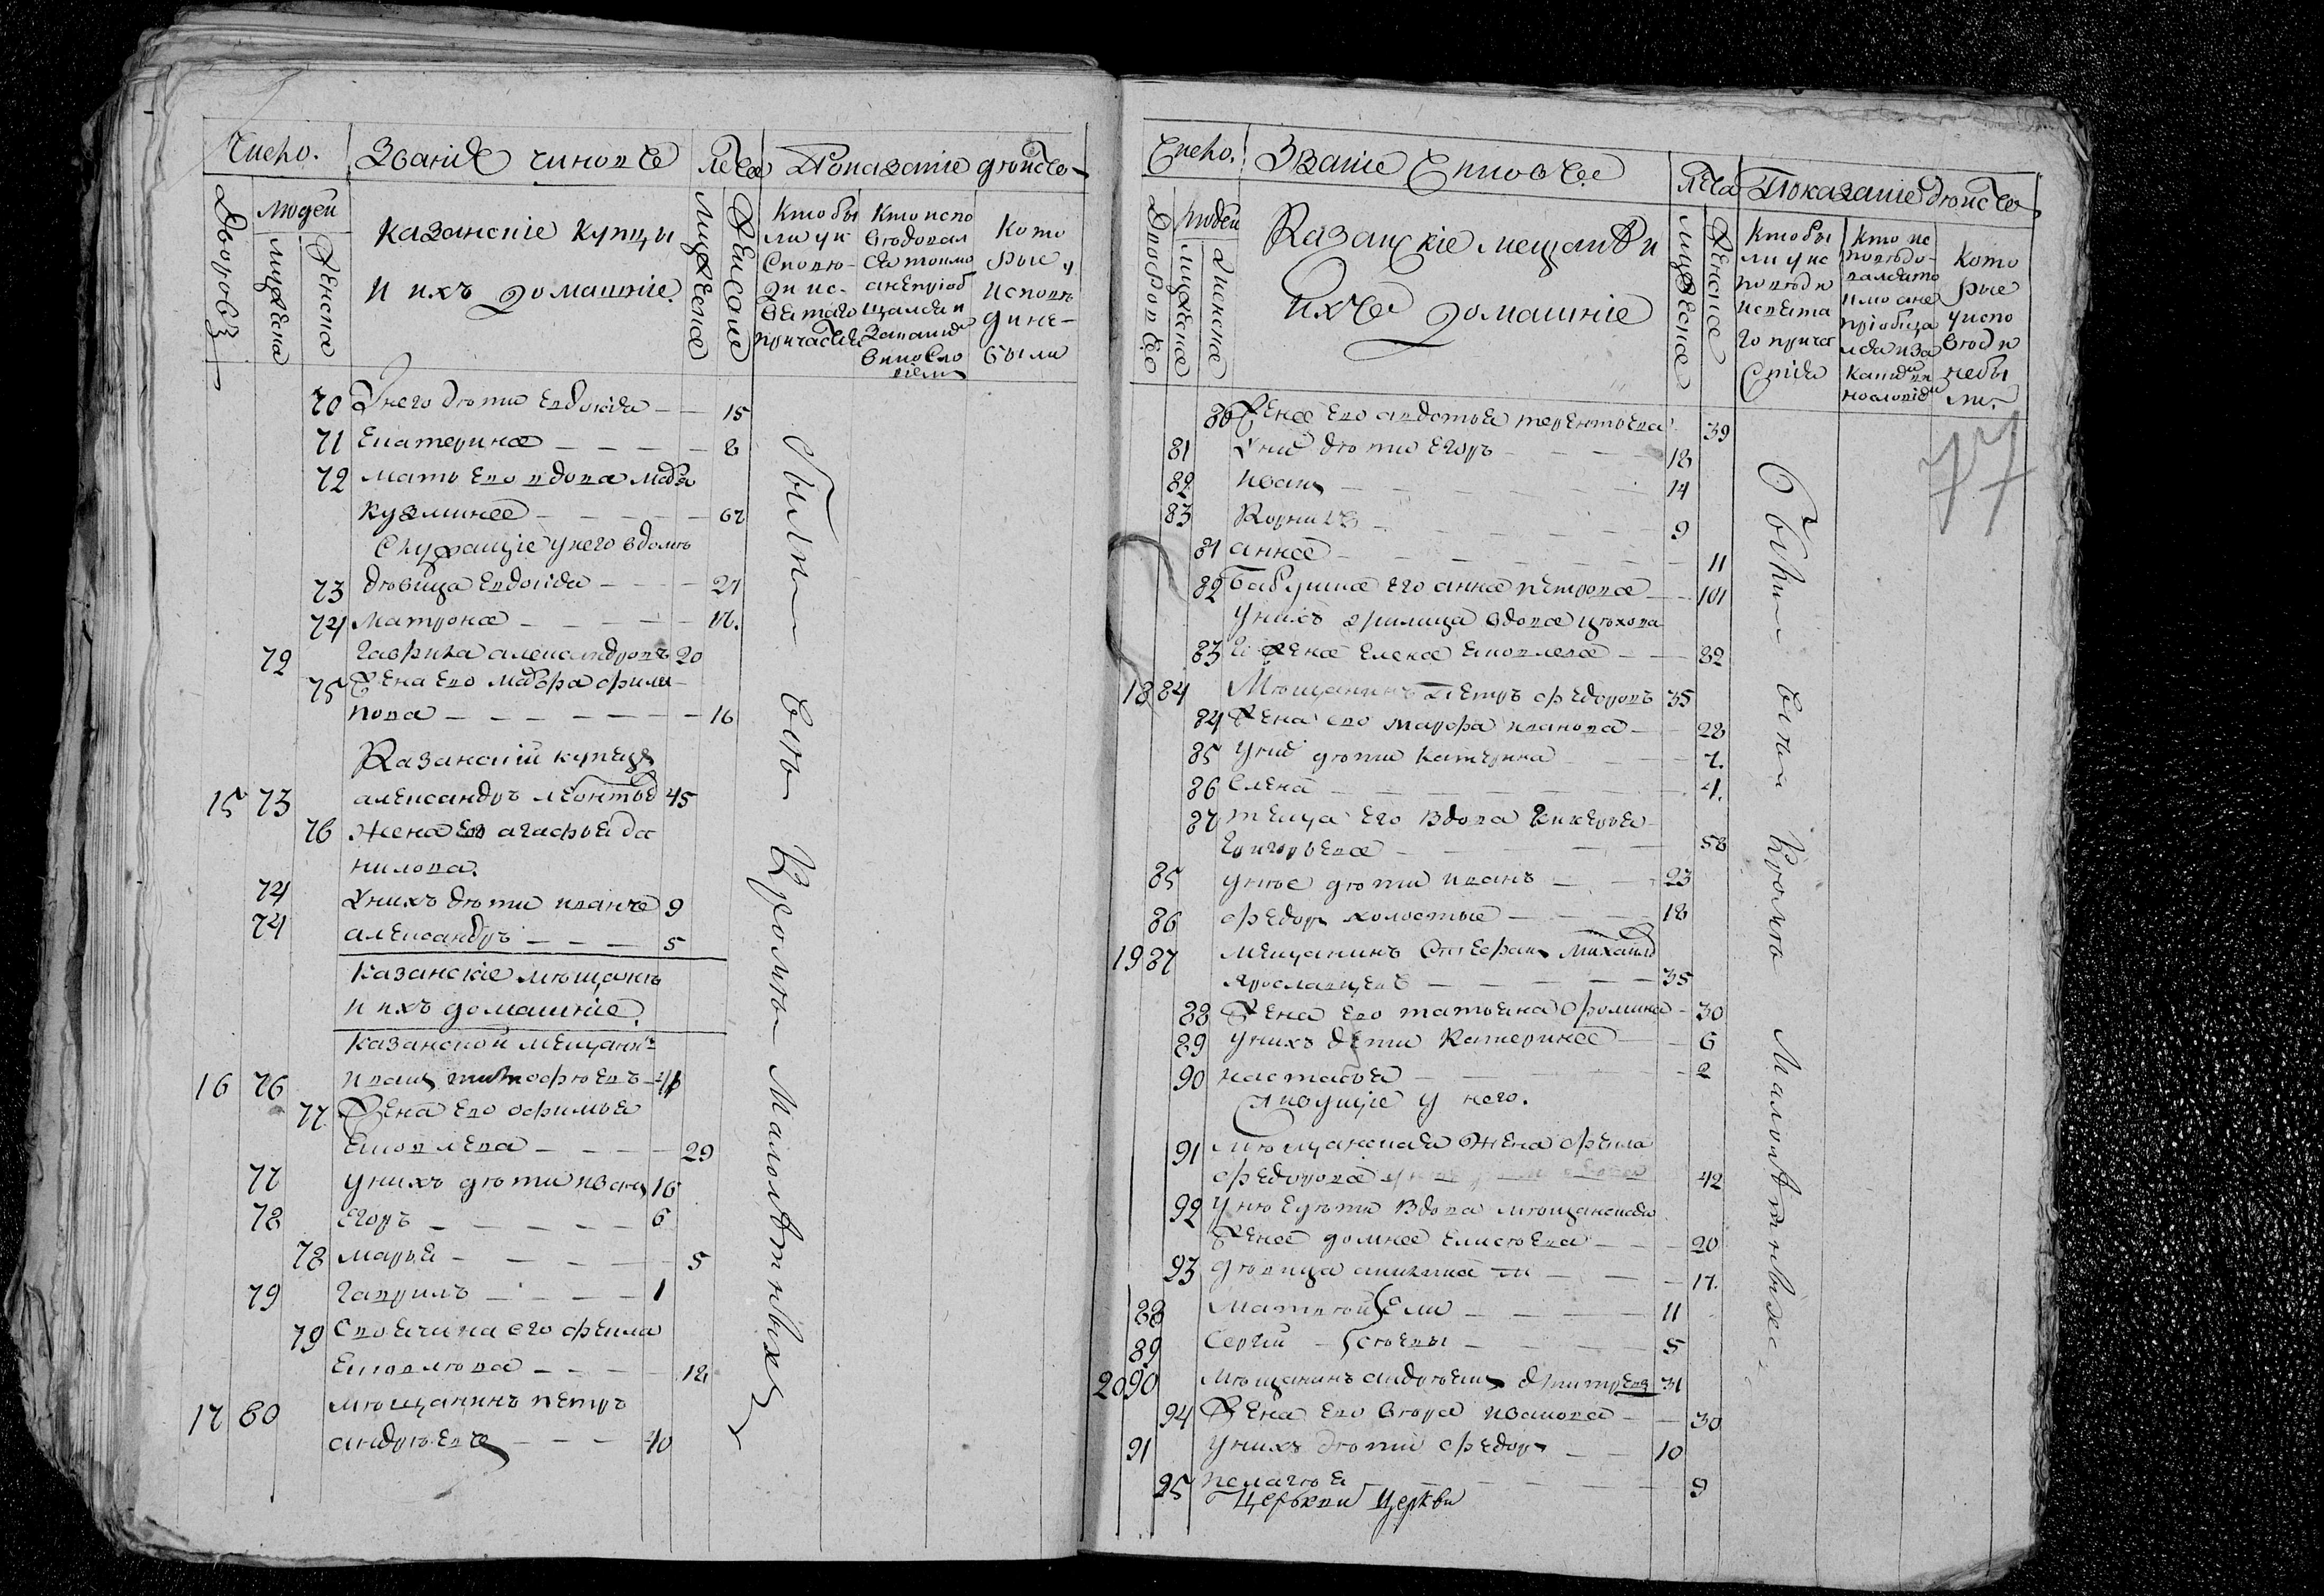 Число.
Званіе чиновъ
Лета
Показаніе действъ
Дворовъ
людей
мужеска
женска
казанскіе купцы
и ихъ домашніе.
мужеска
женска
кто бы
ли у и
спове-
ди и с-
вятаго
причастия
кто испо
ведовал
ся токмо
а не приоб
щался и
за каким
винословіем
кото
рые у
исповъ
ди не-
были
70 У него дети Евдокія — — 15
71 Екатерина — — — — 8
72 мать его вдова мавра
кузмина — — — — 67
Служащіе у него в доме
73 девица Евдокія — — — 27
74 матрона — — — — 17.
72 Гаврила александровъ 20
75 Жена его мавра фили-
пова — — — — — — 16
Казанский купецъ
15 73 александръ леонтьев 45
76 жена его агафья да
нилова.
74 У нихъ дети иванъ 9
74 александръ — — — 5
казанскіе мещане
и ихъ домашніе.
казанской мещанинъ
16 76 иванъ тимофеевъ
77 Жена его офимья
Яковлева — — — — 29
77 у нихъ дети иванъ 16
78 егоръ — — — — — 6
78 марья — — — — — 5
79 гаврилъ — — — — 1
79 Своячина его фекла
Яковлева — — — 18
17 80 мещанинъ петръ
андреевъ — — — 40
Были все Кроме Малолетныхъ
Число.
Званіе Чиновъ
Лета
Показаніе действъ
Дворовъ
людей
мужеска
женска
Казанскіе мещане и
ихъ домашніе
мужеска
женска
кто бы
ли у ис
поведи
и свята
го прича
стія
кто ис
поведо-
вался то
кмо а не
приобща
лся и за
каким ви
нословіем
кото
рые
у испо
веди
небы
ли.
77
80 Жена его авдотья терентьева 39
81 У них дети егоръ — — — — 18
82 иванъ — — — — — — 14
83 Корнилъ — — — — — 9
81 анна — — — — — — — 11
82 бабушка его анна петрова — — 101
у нихъ жилица вдова цехова
83 я жена елена Яковлева — — 82
18 84 Мещанинъ петръ федоровъ 35
84 Жена его марфа иванова — — 28
85 у них дети катерина — — — 7.
86 елена — — — — — — — 4.
87 теща его вдова гликерья
григорьева — — — — — 58
85 у нее дети иванъ — — — 23
86 федоръ холостые — — — 18
19 87 мещанинъ Стефанъ михайлов
ярославцевъ — — — — — 35
88 Жена его татьяна фомина — 30
89 у нихъ дети катерина — — 6
90 настасья — — — — — 2
Живущіе у него.
91 мещанская жена фекла
федорова 42
92 у нее дети вдова мещанская
жена домна елисеева — — — 20
93 девица акилина — — — 17.
88 матвей ели — — — — 11
89 Сергий — сеевы — — — — 5
20 90 мещанинъ андреянъ дмитриевъ 31
94 Жена его вера иванова — — 30
91 у нихъ дети федоръ — — 10
95 пелагея — — — — — — 9
Церькви Церкви
Были все Кроме Малолетныхъ